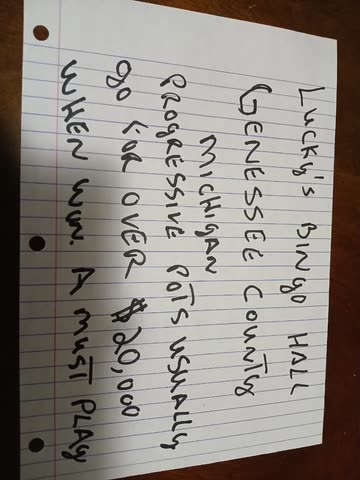 Lucky's BINgo HALL
GENESSEE COUNTY
MICHIgAN
PROgRESSIVE POTS USUALLY
go FOR OVER $20,000
WHEN WON. A MUST PLAY